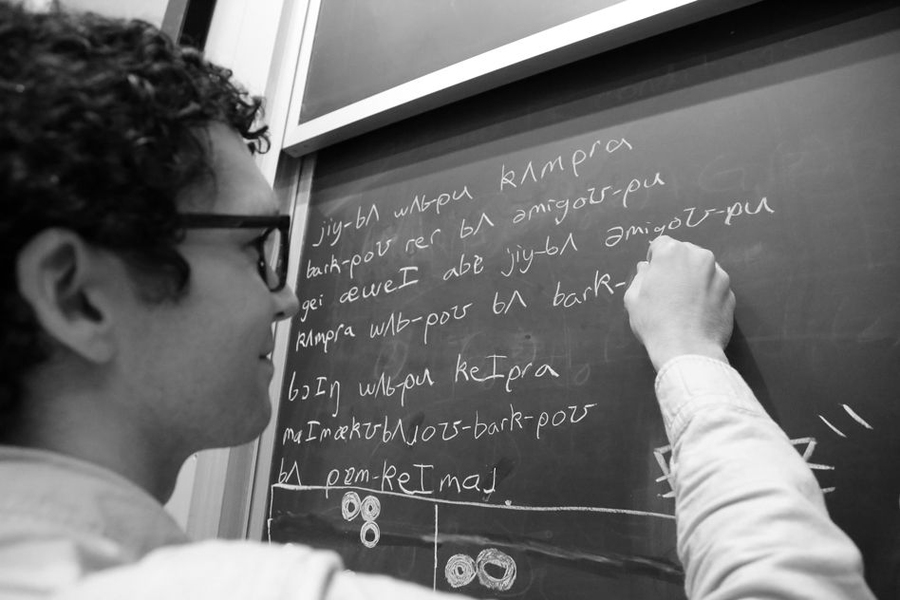 jiy-bʌ wʌb-pu kʌmpra
bark-poʊ rer bʌ əmigoʊ-pu
gei æweI abe jiy-bʌ əmigoʊ-pu
kʌmpra wʌb-poʊ bʌ bark-
bɔIŋ wʌb-pu keIpra
maImækʊbʌɹoʊ-bark-poʊ
bʌ pɐm-keImaɹ